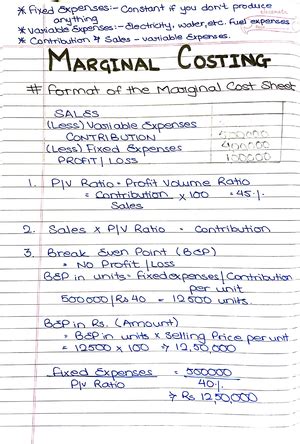 * Fixed Expenses:- Constant if you don't produce
anything
* Variable Expenses:- Electricity, water, etc. Fuel expenses
* Contribution = Sales - variable Expenses.
MARGINAL COSTING
# Format of the Marginal Cost Sheet
SALES
(Less) Variable Expenses
CONTRIBUTION 500000
(Less) Fixed Expenses 400000
PROFIT/LOSS 100000
1. P/V Ratio = Profit Volume Ratio
= Contribution / Sales × 100 = 45%
2. Sales × P/V Ratio = Contribution
3. Break Even Point (BEP)
= No Profit/Loss
BEP in units = Fixed expenses/Contribution
per unit
500000/Rs 40 = 12500 units.
BEP in Rs. (Amount)
= BEP in units × Selling Price per unit
= 12500 × 100 → 12,50,000
Fixed Expenses = 500000
P/V Ratio 40%
→ Rs 1250000